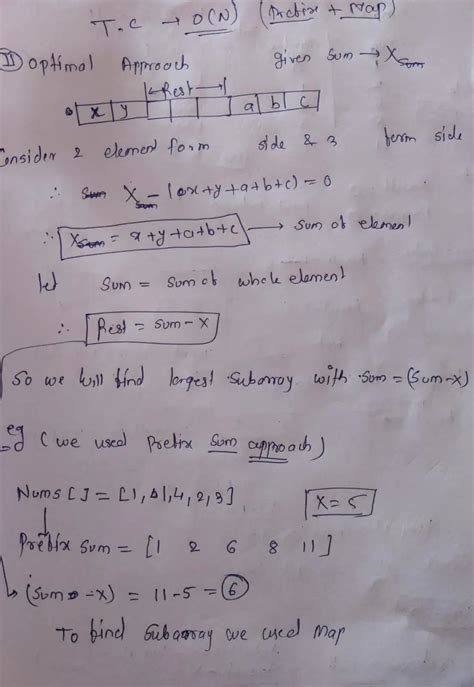 T.C → O(N) (Prefix + Map)
II Optimal Approach given sum → X sum
|← Rest →|
x y a b c
Consider 2 element form side & 3 form side
∴ X sum - (x+y+a+b+c) = 0
∴ X sum = x+y+a+b+c → sum of element
let sum = sum of whole element
∴ Rest = sum - x
So we will find largest subarray with sum = (sum-x)
eg (we used Prefix Sum approach)
Nums [] = [1, 1, 4, 2, 3] X = 5
Prefix sum = [1 2 6 8 11]
(sum - x) = 11 - 5 = 6
To find Subarray we used Map